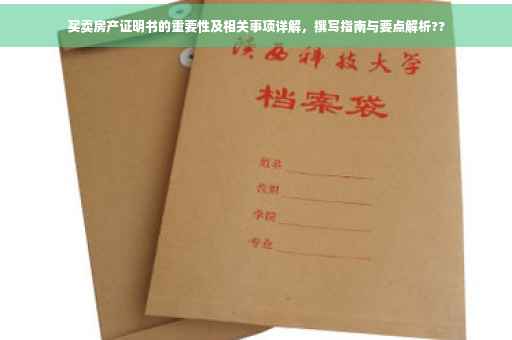 买卖房产证明书的重要性及相关事项详解，撰写指南与要点解析??
陕西科技大学
档案袋
姓名
学院
专业